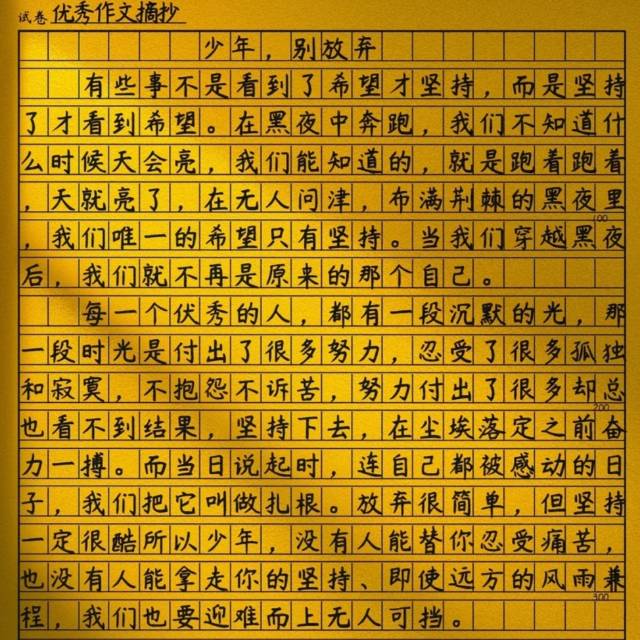 试卷 优秀作文摘抄
少年，别放弃
有些事不是看到了希望才坚持，而是坚持
了才看到希望。在黑夜中奔跑，我们不知道什
么时候天会亮，我们能知道的，就是跑着跑着
，天就亮了，在无人问津，布满荆棘的黑夜里
100
，我们唯一的希望只有坚持。当我们穿越黑夜
后，我们就不再是原来的那个自己。
每一个伏秀的人，都有一段沉默的光，那
一段时光是付出了很多努力，忍受了很多孤独
和寂寞，不抱怨不诉苦，努力付出了很多却总
200
也看不到结果，坚持下去，在尘埃落定之前奋
力一搏。而当日说起时，连自己都被感动的日
子，我们把它叫做扎根。放弃很简单，但坚持
一定很酷所以少年，没有人能替你忍受痛苦，
也没有人能拿走你的坚持、即使远方的风雨兼
300
程，我们也要迎难而上无人可挡。